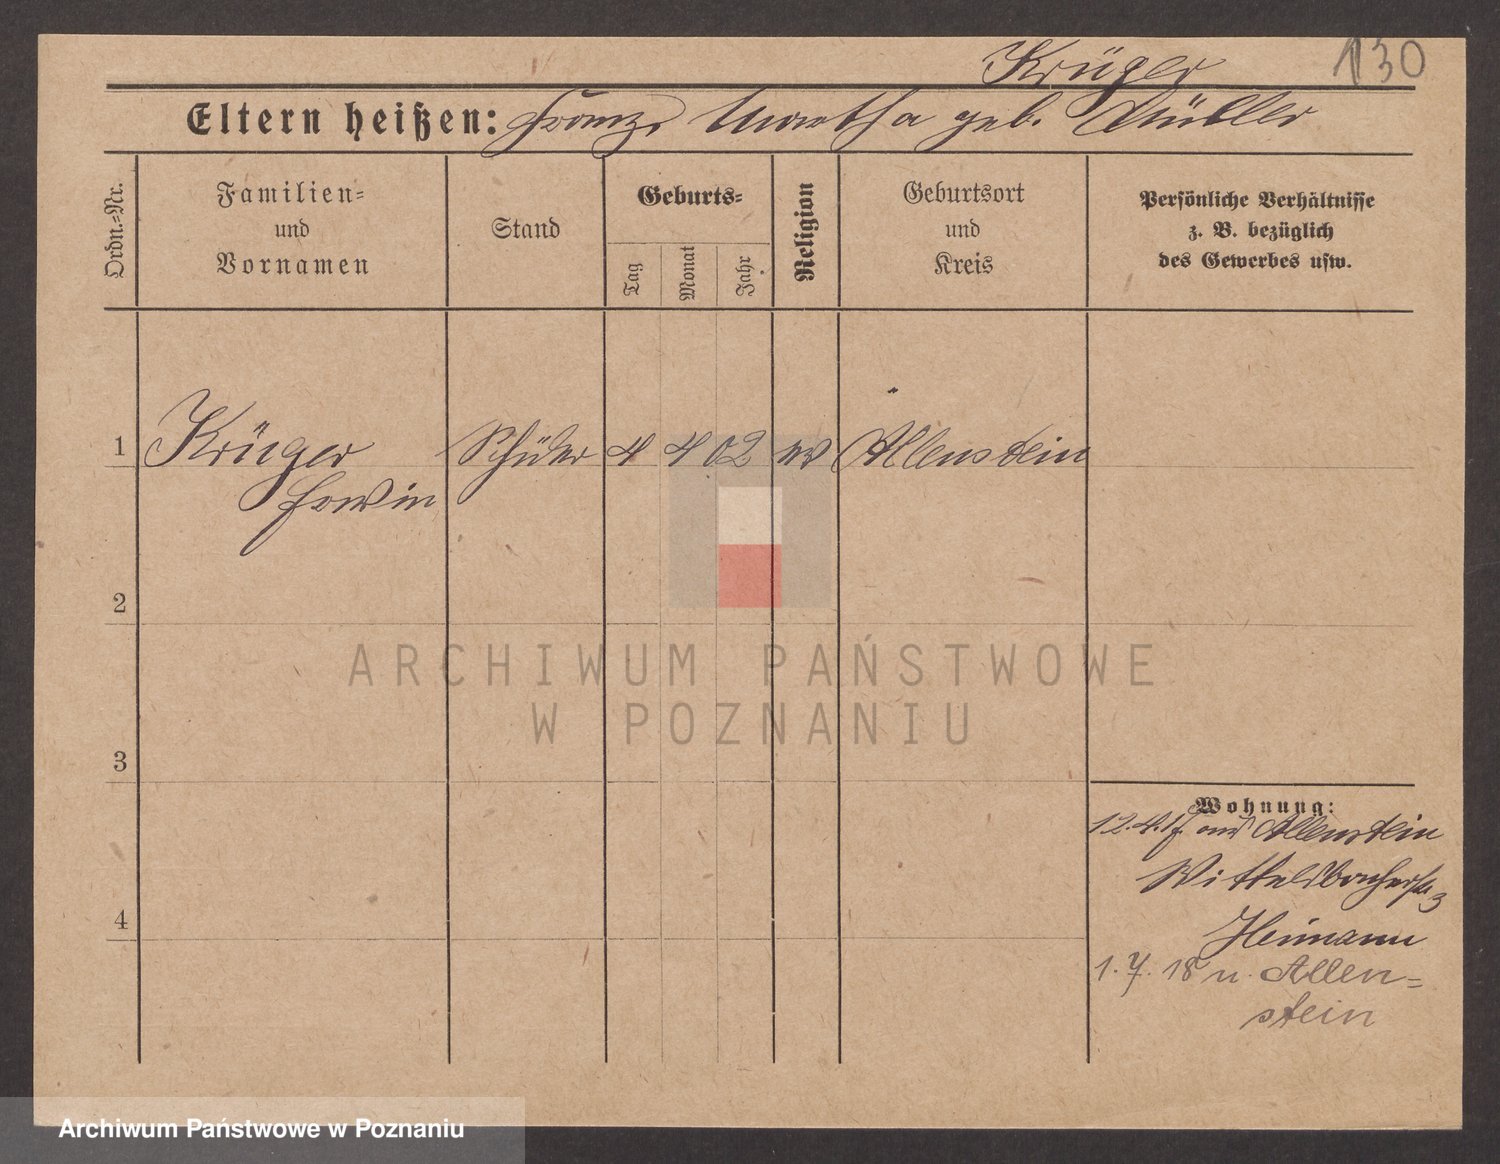 Krüger 130
Eltern heißen: Franz, Martha geb. Müller
Ordn.=Nr.
Familien=
und
Vornamen
Stand
Geburts=
Tag
Monat
Jahr
Religion
Geburtsort
und
Kreis
Persönliche Verhältnisse
z. B. bezüglich
des Gewerbes usw.
1 Krüger Schüler 4 4 02 ev Allenstein
Erwin
2
3
4
Wohnung:
12.4.17. aus Allenstein
Wittelsbacherstr 3
Heimann
1.7.18 n. Allen=
stein
ARCHIWUM PAŃSTWOWE
W POZNANIU
Archiwum Państwowe w Poznaniu